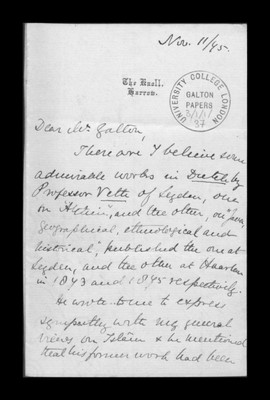 Nov. 11/95.
The Knoll.
Harrow.
UNIVERSITY COLLEGE LONDON
GALTON
PAPERS
Dear Mr. Galton,
There are I believe some
admirable works in Dutch by
Professor Veth of Leyden, one
on "Atchin", and the other, on "Java,
geographical, ethnological and
historical", published the one at
Leyden, and the other at Haarlem
in 1873 and 1875 respectively.
He wrote to me to express
sympathy with my general
views on Islâm & he mentioned
that his former work had been